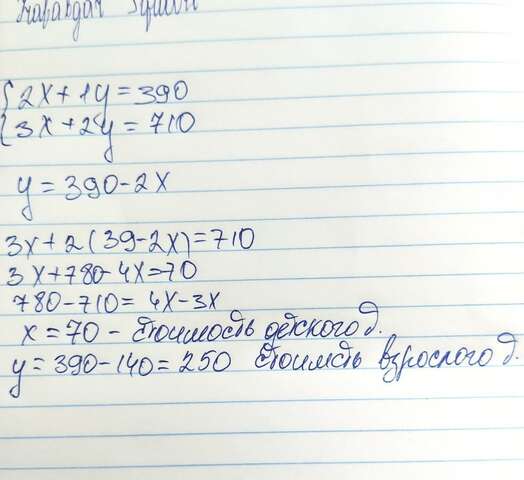 {2x+1y=390
{3x+2y=710
y=390-2x
3x+2(39-2x)=710
3x+780-4x=70
780-710=4x-3x
x=70 - стоимость детского д.
y=390-140=250 стоимсть взрослого д.